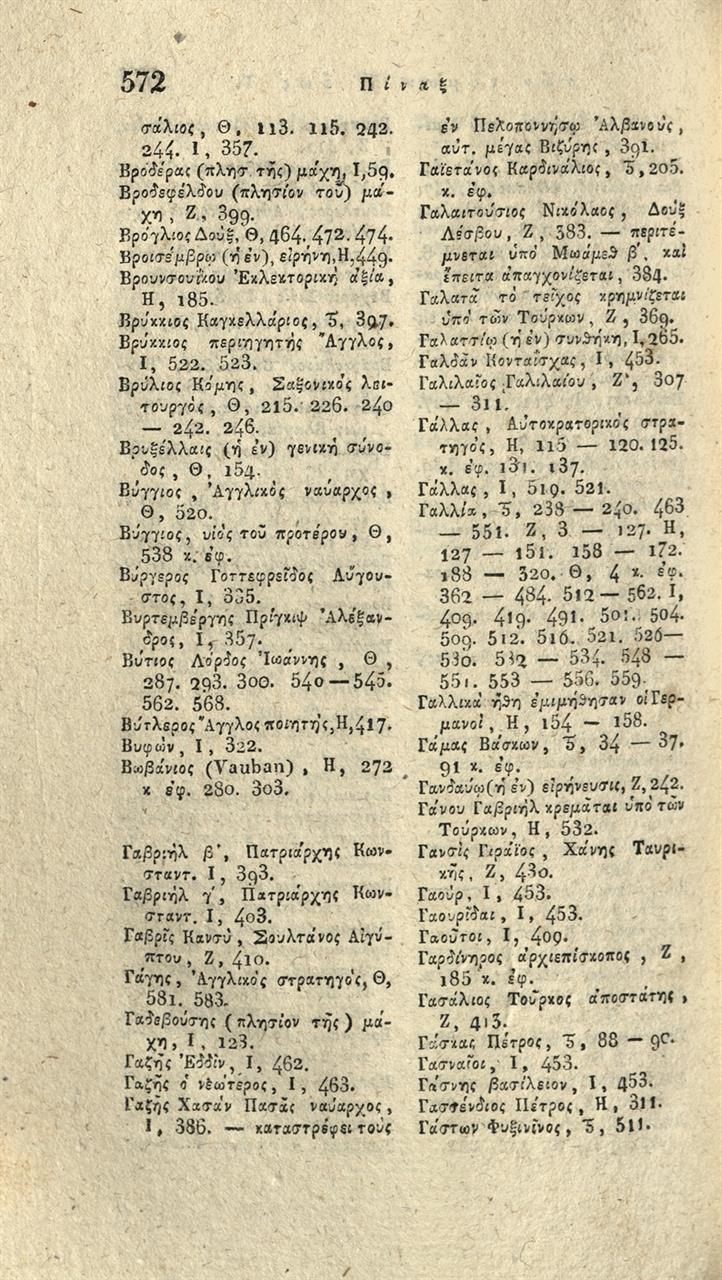 572
Πίναξ
σάλιος, Θ, 113. 115. 242.
244. Ι, 357.
Βροδέρας (πλησ. τῆς) μάχη, Ι, 59.
Βροδεφέλδου (πλησίον τοῦ) μά-
χη, Ζ, 399.
Βρόγλιος Δούξ, Θ, 464. 472. 474.
Βροισέμβρῳ (ἡ ἐν), εἰρήνη, Η, 449.
Βρουνσουΐκου Ἐκλεκτορικὴ ἀξία,
Η, 185.
Βρύκκιος Καγκελλάριος, Ϛ, 397.
Βρύκκιος περιηγητὴς Ἄγγλος,
Ι, 522. 523.
Βρύλιος Κόμης, Σαξονικὸς λει-
τουργὸς, Θ, 215. 226. 240
— 242. 246.
Βρυξέλλαις (ἡ ἐν) γενικὴ σύνο-
δος, Θ, 154.
Βύγγιος, Ἀγγλικὸς ναύαρχος,
Θ, 520.
Βύγγιος, υἱὸς τοῦ προτέρου, Θ,
538 κ. ἐφ.
Βύργερος Γοττεφρεῖδος Αὔγου-
στος, Ι, 335.
Βυρτεμβέργης Πρίγκιψ Ἀλέξαν-
δρος, Ι, 357.
Βύτιος Λόρδος Ἰωάννης, Θ,
287. 293. 300. 540 — 545.
562. 568.
Βύτλερος Ἄγγλος ποιητὴς, Η, 417.
Βυφὼν, Ι, 322.
Βωβάνιος (Vauban), Η, 272
κ ἐφ. 280. 303.
Γαβριὴλ β', Πατριάρχης Κων-
σταντ. Ι, 393.
Γαβριὴλ γ', Πατριάρχης Κων-
σταντ. Ι, 403.
Γαβρῖς Κανσὺ, Σουλτάνος Αἰγύ-
πτου, Ζ, 410.
Γάγης, Ἀγγλικὸς στρατηγὸς, Θ,
581. 583.
Γαδεβούσης (πλησίον τῆς) μά-
χη, Ι, 123.
Γαζῆς Ἐδδὶν, Ι, 462.
Γαζῆς ὁ νεώτερος, Ι, 463.
Γαζῆς Χασὰν Πασᾶς ναύαρχος,
Ι, 386. — καταστρέφει τοὺς
ἐν Πελοποννήσῳ Ἀλβανοὺς,
αὐτ. μέγας Βιζύρης, 391.
Γαϊετάνος Καρδινάλιος, Ϛ, 205.
κ. ἐφ.
Γαλαιτούσιος Νικόλαος, Δοὺξ
Λέσβου, Ζ, 383. — περιτέ-
μνεται ὑπὸ Μωάμεθ β', καὶ
ἔπειτα ἀπαγχονίζεται, 384.
Γαλατᾶ τὸ τεῖχος κρημνίζεται
ὑπὸ τῶν Τούρκων, Ζ, 369.
Γαλατσίῳ (ἡ ἐν) συνθήκη, Ι, 265.
Γαλδὰν Κονταΐσχας, Ι, 453.
Γαλιλαῖος Γαλιλαίου, Ζ, 307
— 311.
Γάλλας, Αὐτοκρατορικὸς στρα-
τηγὸς, Η, 115 — 120. 125.
κ. ἐφ. 131. 137.
Γάλλας, Ι, 519. 521.
Γαλλία, Ϛ, 238 — 240. 463
— 551. Ζ, 3 — 127. Η,
127 — 151. 158 — 172.
188 — 320. Θ, 4 κ. ἐφ.
362 — 484. 512 — 562. Ι,
409. 419. 491. 501. 504.
509. 512. 516. 521. 526—
530. 532 — 534. 548 —
551. 553 — 556. 559.
Γαλλικὰ ἤθη ἐμιμήθησαν οἱ Γερ-
μανοὶ, Η, 154 — 158.
Γάμας Βάσκων, Ϛ, 34 — 37.
91 κ. ἐφ.
Γανδαύῳ (ἡ ἐν) εἰρήνευσις, Ζ, 242.
Γάνου Γαβριὴλ κρεμᾶται ὑπὸ τῶν
Τούρκων, Η, 532.
Γανσὶς Γιράϊος, Χάνης Ταυρι-
κῆς, Ζ, 430.
Γαοὺρ, Ι, 453.
Γαουρῖδαι, Ι, 453.
Γαοῦτοι, Ι, 409.
Γαρδίνηρος ἀρχιεπίσκοπος, Ζ,
185 κ. ἐφ.
Γασάλιος Τοῦρκος ἀποστάτης,
Ζ, 413.
Γάσκας Πέτρος, Ϛ, 88 — 90.
Γασναῖοι, Ι, 453.
Γάσνης βασίλειον, Ι, 453.
Γασσένδιος Πέτρος, Η, 311.
Γάστων Φυξινῖνος, Ϛ, 511.